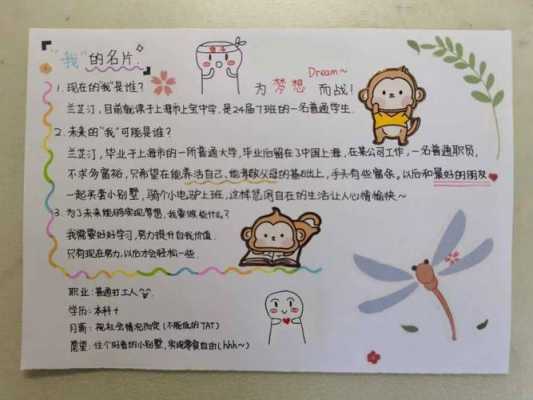 "我"的名片:
奋斗
Dream~
为 梦想 而战!
1. 现在的"我"是谁?
兰芷汀,目前就读于上海市上宝中学,是24届7班的一名普通学生.
2. 未来的"我"可能是谁?
兰芷汀,毕业于上海市的一所普通大学,毕业后留在了中国上海,在某公司工作,一名普通职员,
不求多富裕,只希望在能养活自己,能孝敬父母的基础上,手头有些富余。以后和最好的朋友
一起买套小别墅,骑个小电驴上班,这样悠闲自在的生活让人心情愉快~
3. 为了未来能够实现梦想,我要做些什么?
我需要好好学习,努力提升自我价值.
只有现在努力,以后才会轻松一些.
职业:普通打工人
学历:本科+
月薪:视社会情况而定(不能低的TAT)
愿望:住个好看的小别墅,实现零食自由(hhh~)